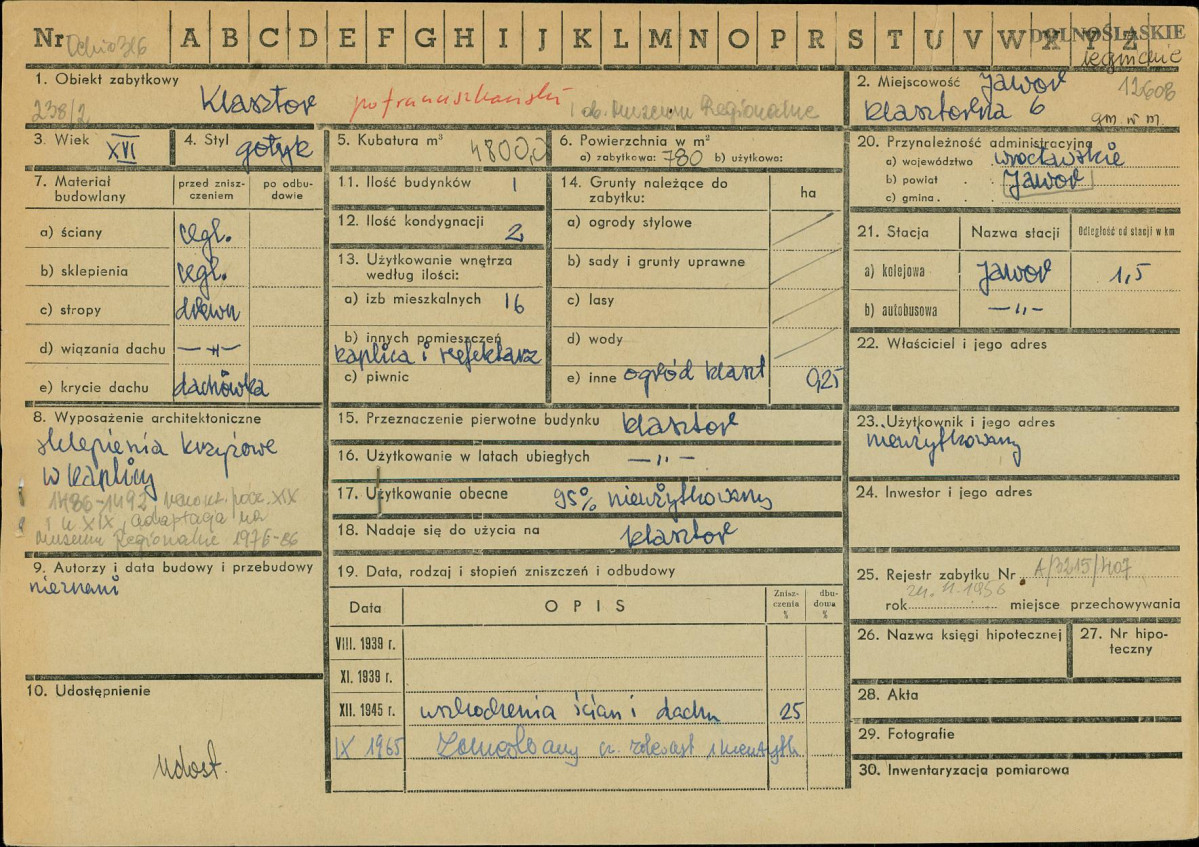 Nr A B C D E F G H I J K L M N O P R S T U V W X Y Z DOLNOŚLĄSKIE
legnickie
1. Obiekt zabytkowy
238/2 Klasztor pofranciszkański ob. Muzeum Regionalne
2. Miejscowość Jawor 12608
klasztorna 6
gm. w m.
3. Wiek XVI
4. Styl gotyk
5. Kubatura m³ 4800,0
6. Powierzchnia w m²
a) zabytkowa: 780 b) użytkowo:
20. Przynależność administracyjna
a) województwo wrocławskie
b) powiat Jawor
c) gmina
7. Materiał budowlany
przed zniszczeniem
po odbudowie
a) ściany cegł.
b) sklepienia cegł.
c) stropy drewn
d) wiązania dachu —„—
e) krycie dachu dachówka
11. Ilość budynków 1
12. Ilość kondygnacji 2
13. Użytkowanie wnętrza według ilości:
a) izb mieszkalnych 16
b) innych pomieszczeń
kaplica i refektarz
c) piwnic
14. Grunty należące do zabytku:
ha
a) ogrody stylowe
b) sady i grunty uprawne
c) lasy
d) wody
e) inne ogród klaszt 0,25
21. Stacja
Nazwa stacji
Odległość od stacji w km
a) kolejowa Jawor 1,5
b) autobusowa —„—
22. Właściciel i jego adres
8. Wyposażenie architektoniczne
sklepienia krzyżowe
w kaplicy
1486-1492, remont. pocz. XIX
i k XIX, adaptacja na
Muzeum Regionalne 1976-86
15. Przeznaczenie pierwotne budynku klasztor
16. Użytkowanie w latach ubiegłych —„—
17. Użytkowanie obecne 95% nieużytkowany
18. Nadaje się do użycia na klasztor
23. Użytkownik i jego adres
nieużytkowany
24. Inwestor i jego adres
9. Autorzy i data budowy i przebudowy
nieznani
19. Data, rodzaj i stopień zniszczeń i odbudowy
Data
OPIS
Zniszczenia %
dbudowa %
VIII. 1939 r.
XI. 1939 r.
XII. 1945 r. uszkodzenia ścian i dachu 25
IX 1965
25. Rejestr zabytku Nr A/3215/407
rok 1956 miejsce przechowywania
26. Nazwa księgi hipotecznej
27. Nr hipoteczny
10. Udostępnienie
Udost.
28. Akta
29. Fotografie
30. Inwentaryzacja pomiarowa